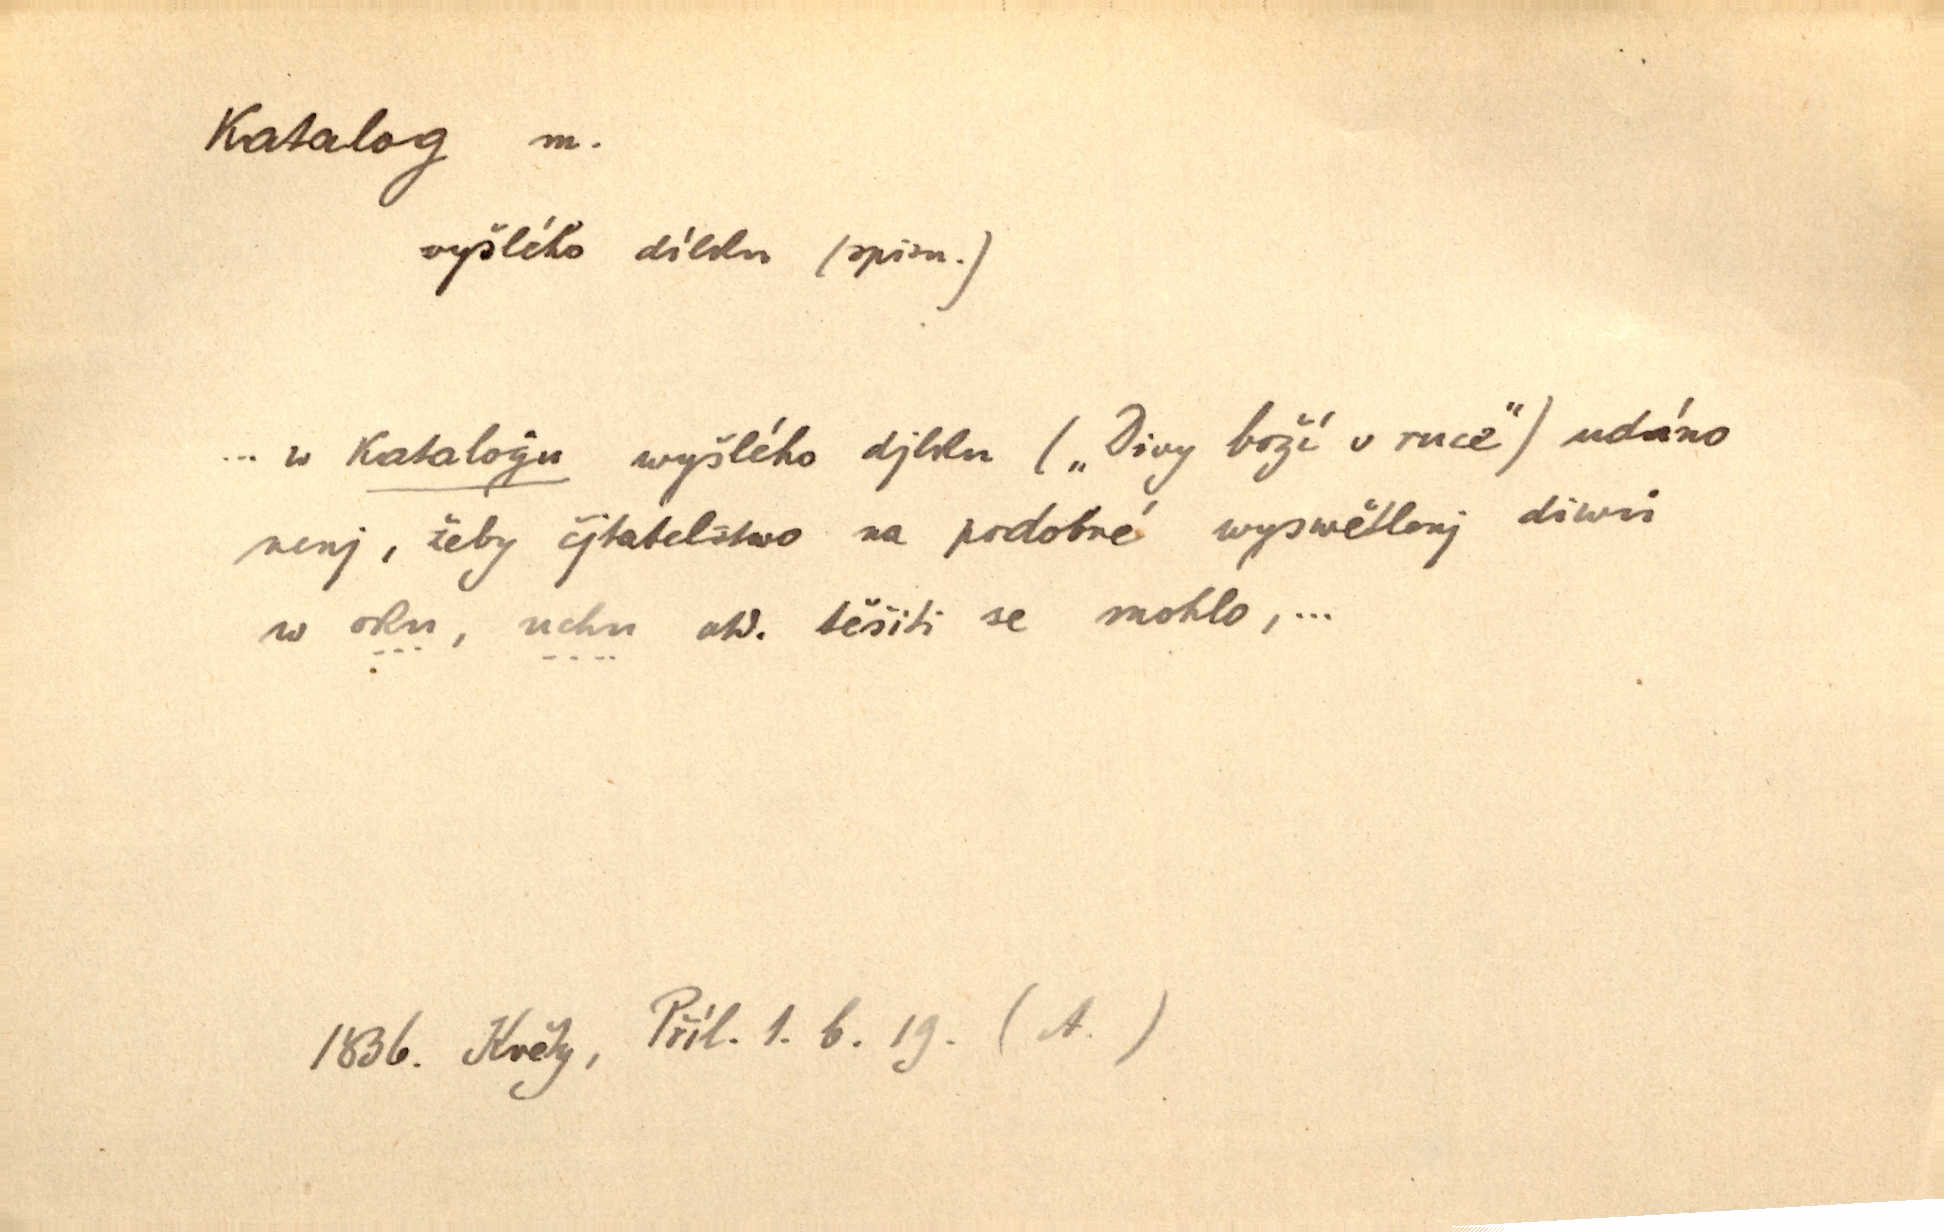 Katalog m.
vyšlého dílku (spisu.)
... w Katalogu wyšlého djlku („Divy boží v ruce“) udáno
nenj, žeby čjtatelstwo na podobné wyswětlenj diwů
w oku, uchu atd. těšiti se mohlo, ...
1836. Květy, Příl. 1. 6. 19. (A.)